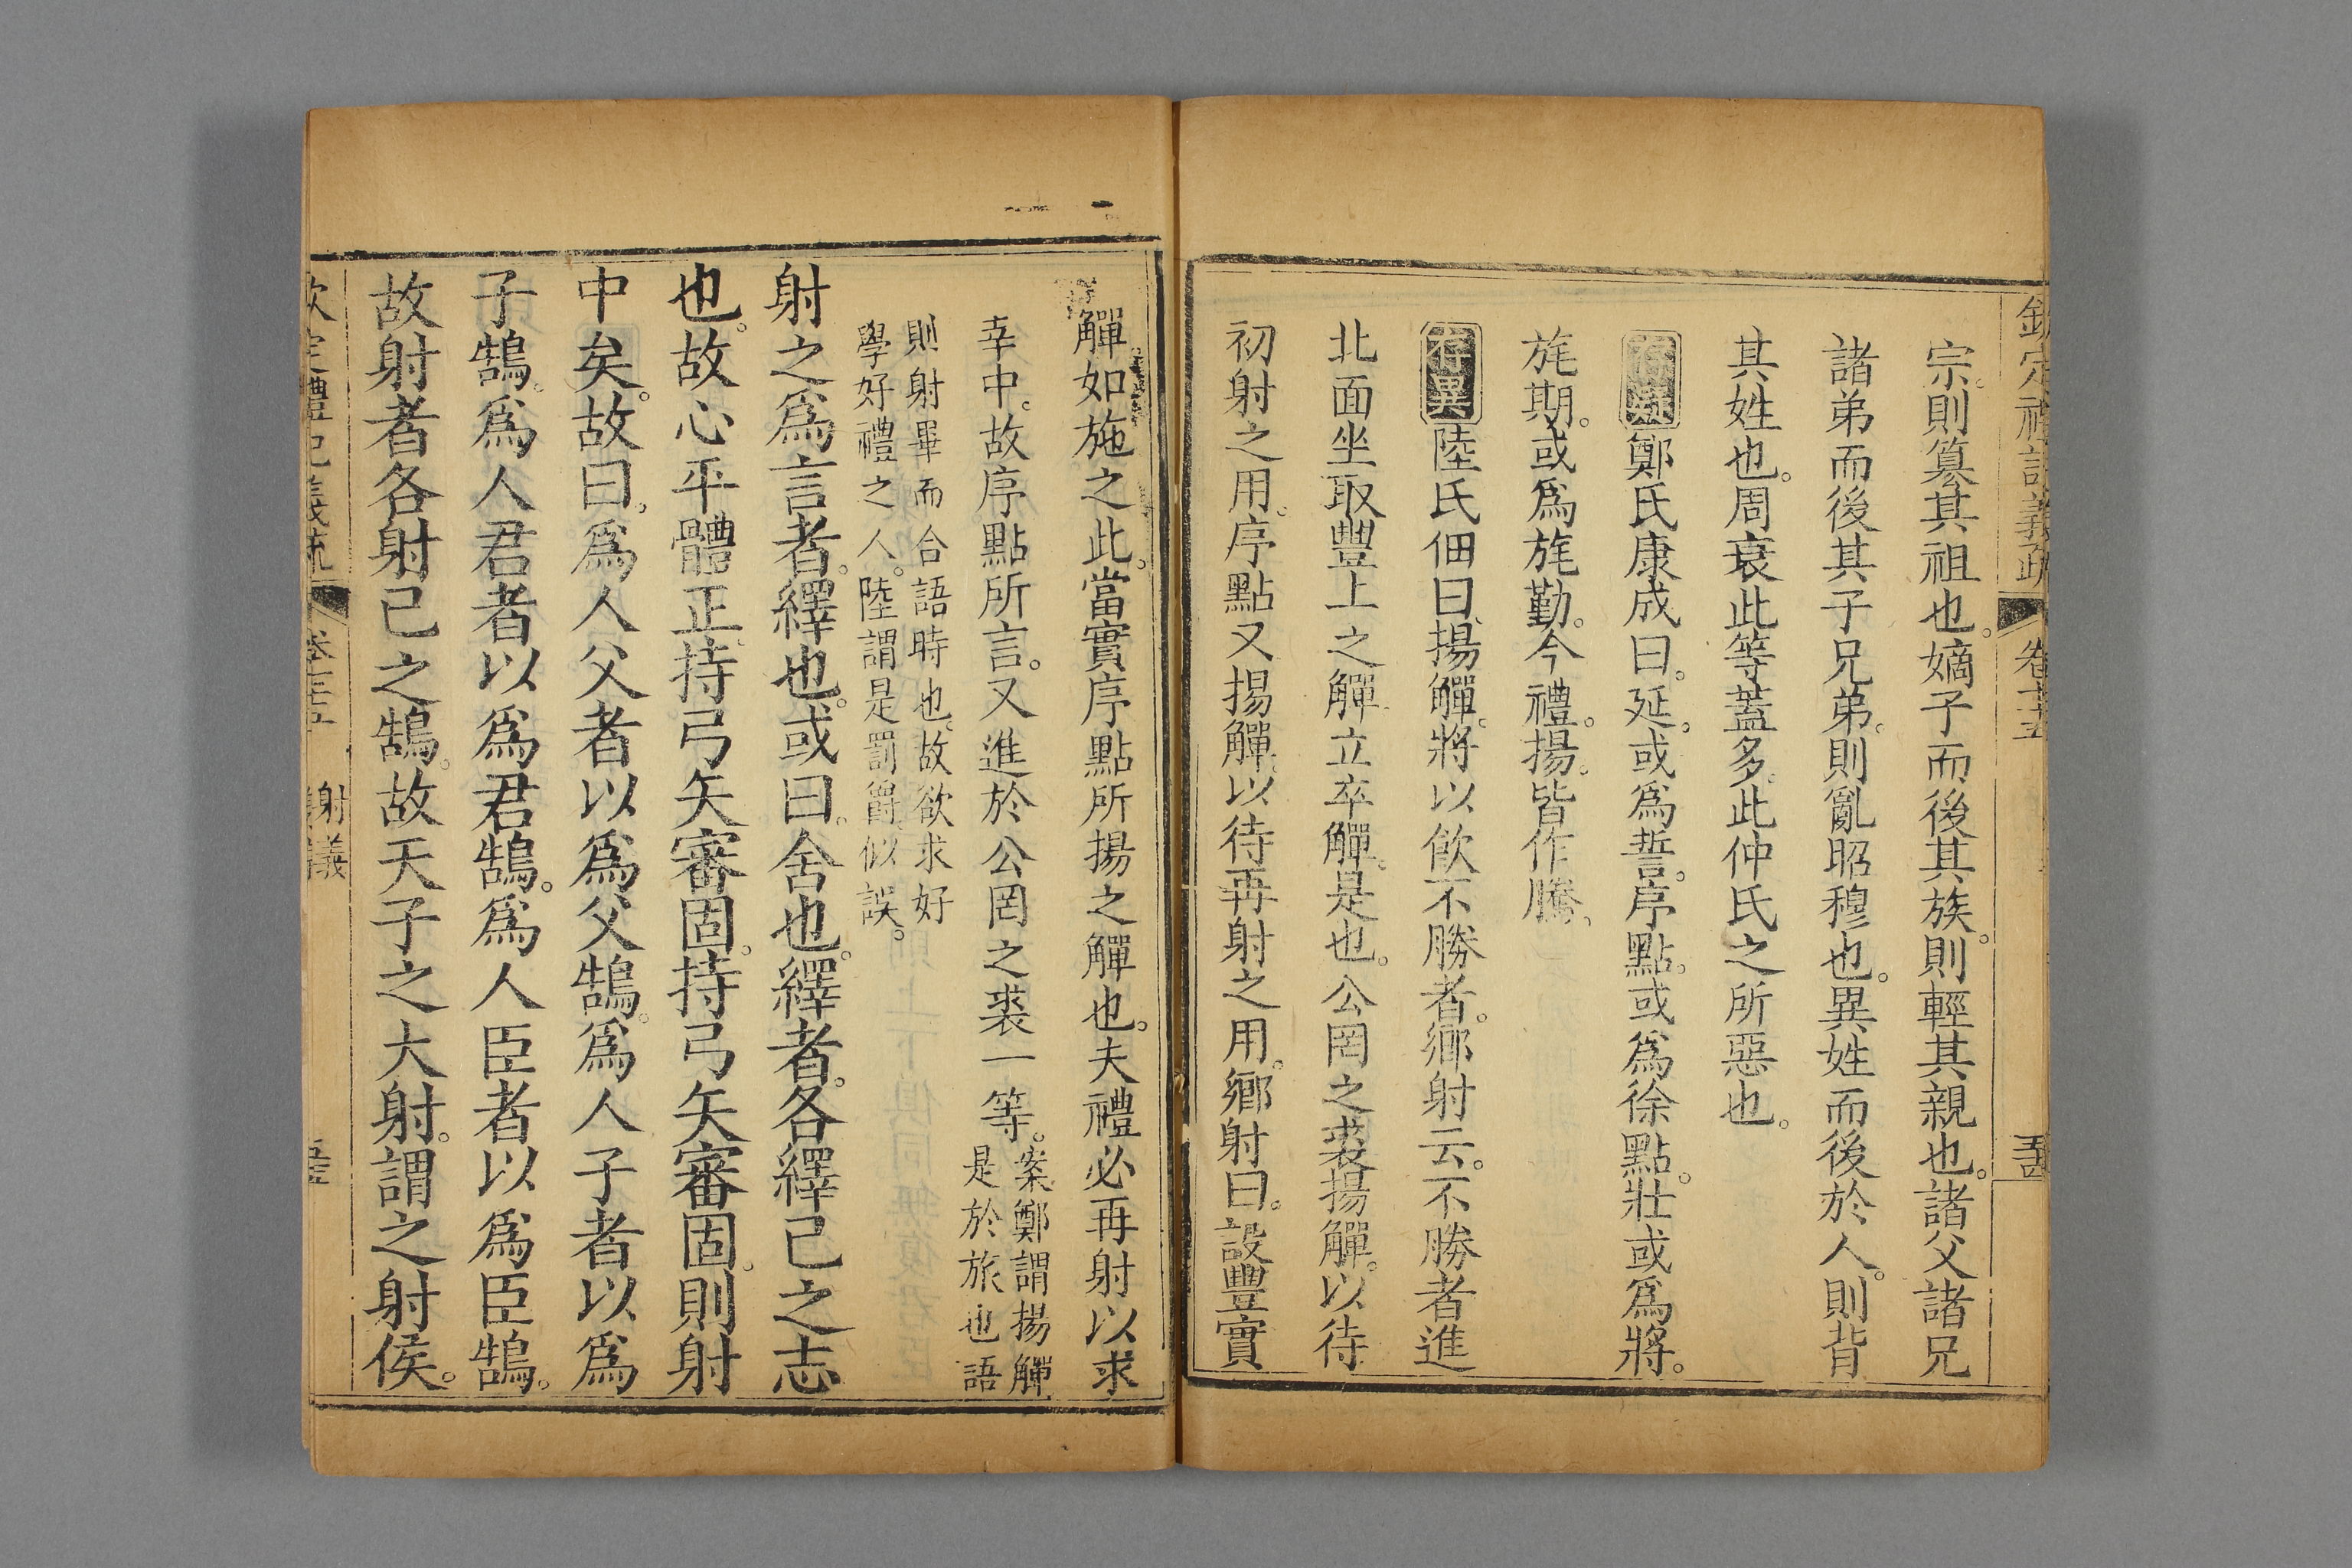 欽定禮記義疏 卷七十五 五十四
宗。則篡其祖也。嫡子而後其族。則輕其親也。諸父諸兄
諸弟而後其子兄弟。則亂昭穆也。異姓而後於人。則背
其姓也。周衰此等蓋多。此仲氏之所惡也。
鄭氏康成曰。延。或爲誓。序點。或爲徐點。壯或爲將。
旄期。或爲旄勤。今禮。揚。皆作騰。
存異陸氏佃曰。揚觶。將以飲不勝者。鄉射云。不勝者進
北面坐取豐上之觶立卒觶。是也。公罔之裘揚觶。以待
初射之用。序點又揚觶。以待再射之用。鄉射曰。設豐實
觶如施之此。當實序點所揚之觶也。夫禮必再射以求
幸中。故序點所言。又進於公罔之裘一等。案鄭謂揚觶
是於旅也語
則射畢而合語時也。故欲求好
學好禮之人。陸謂是罰爵似誤。
射之爲言者。繹也。或曰。舍也。繹者。各繹己之志
也。故心平體正。持弓矢審固。持弓矢審固。則射
中矣。故曰。爲人父者以爲父鵠。爲人子者以爲
子鵠。爲人君者以爲君鵠。爲人臣者以爲臣鵠。
故射者各射己之鵠。故天子之大射。謂之射侯。
欽定禮記義疏 卷七十五 射義